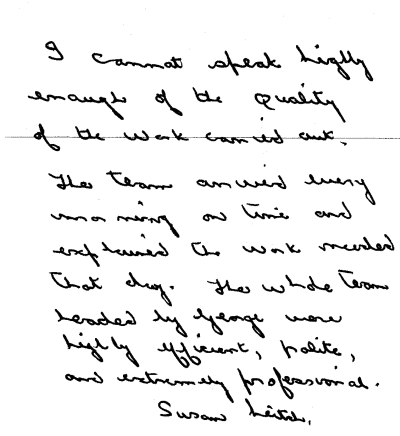 I cannot speak highly
enough of the quality
of the work carried out.
The team arrived every
morning on time and
explained the work needed
that day. The whole team
headed by George were
highly efficient, polite,
and extremely professional.
Susan Leitch.